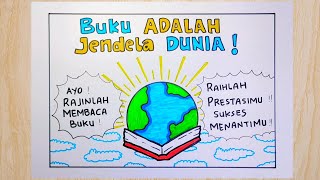 Buku ADALAH
Jendela DUNIA !
AYO !
RAJINLAH
MEMBACA
BUKU !
RAIHLAH
PRESTASIMU !!
SUKSES
MENANTIMU !